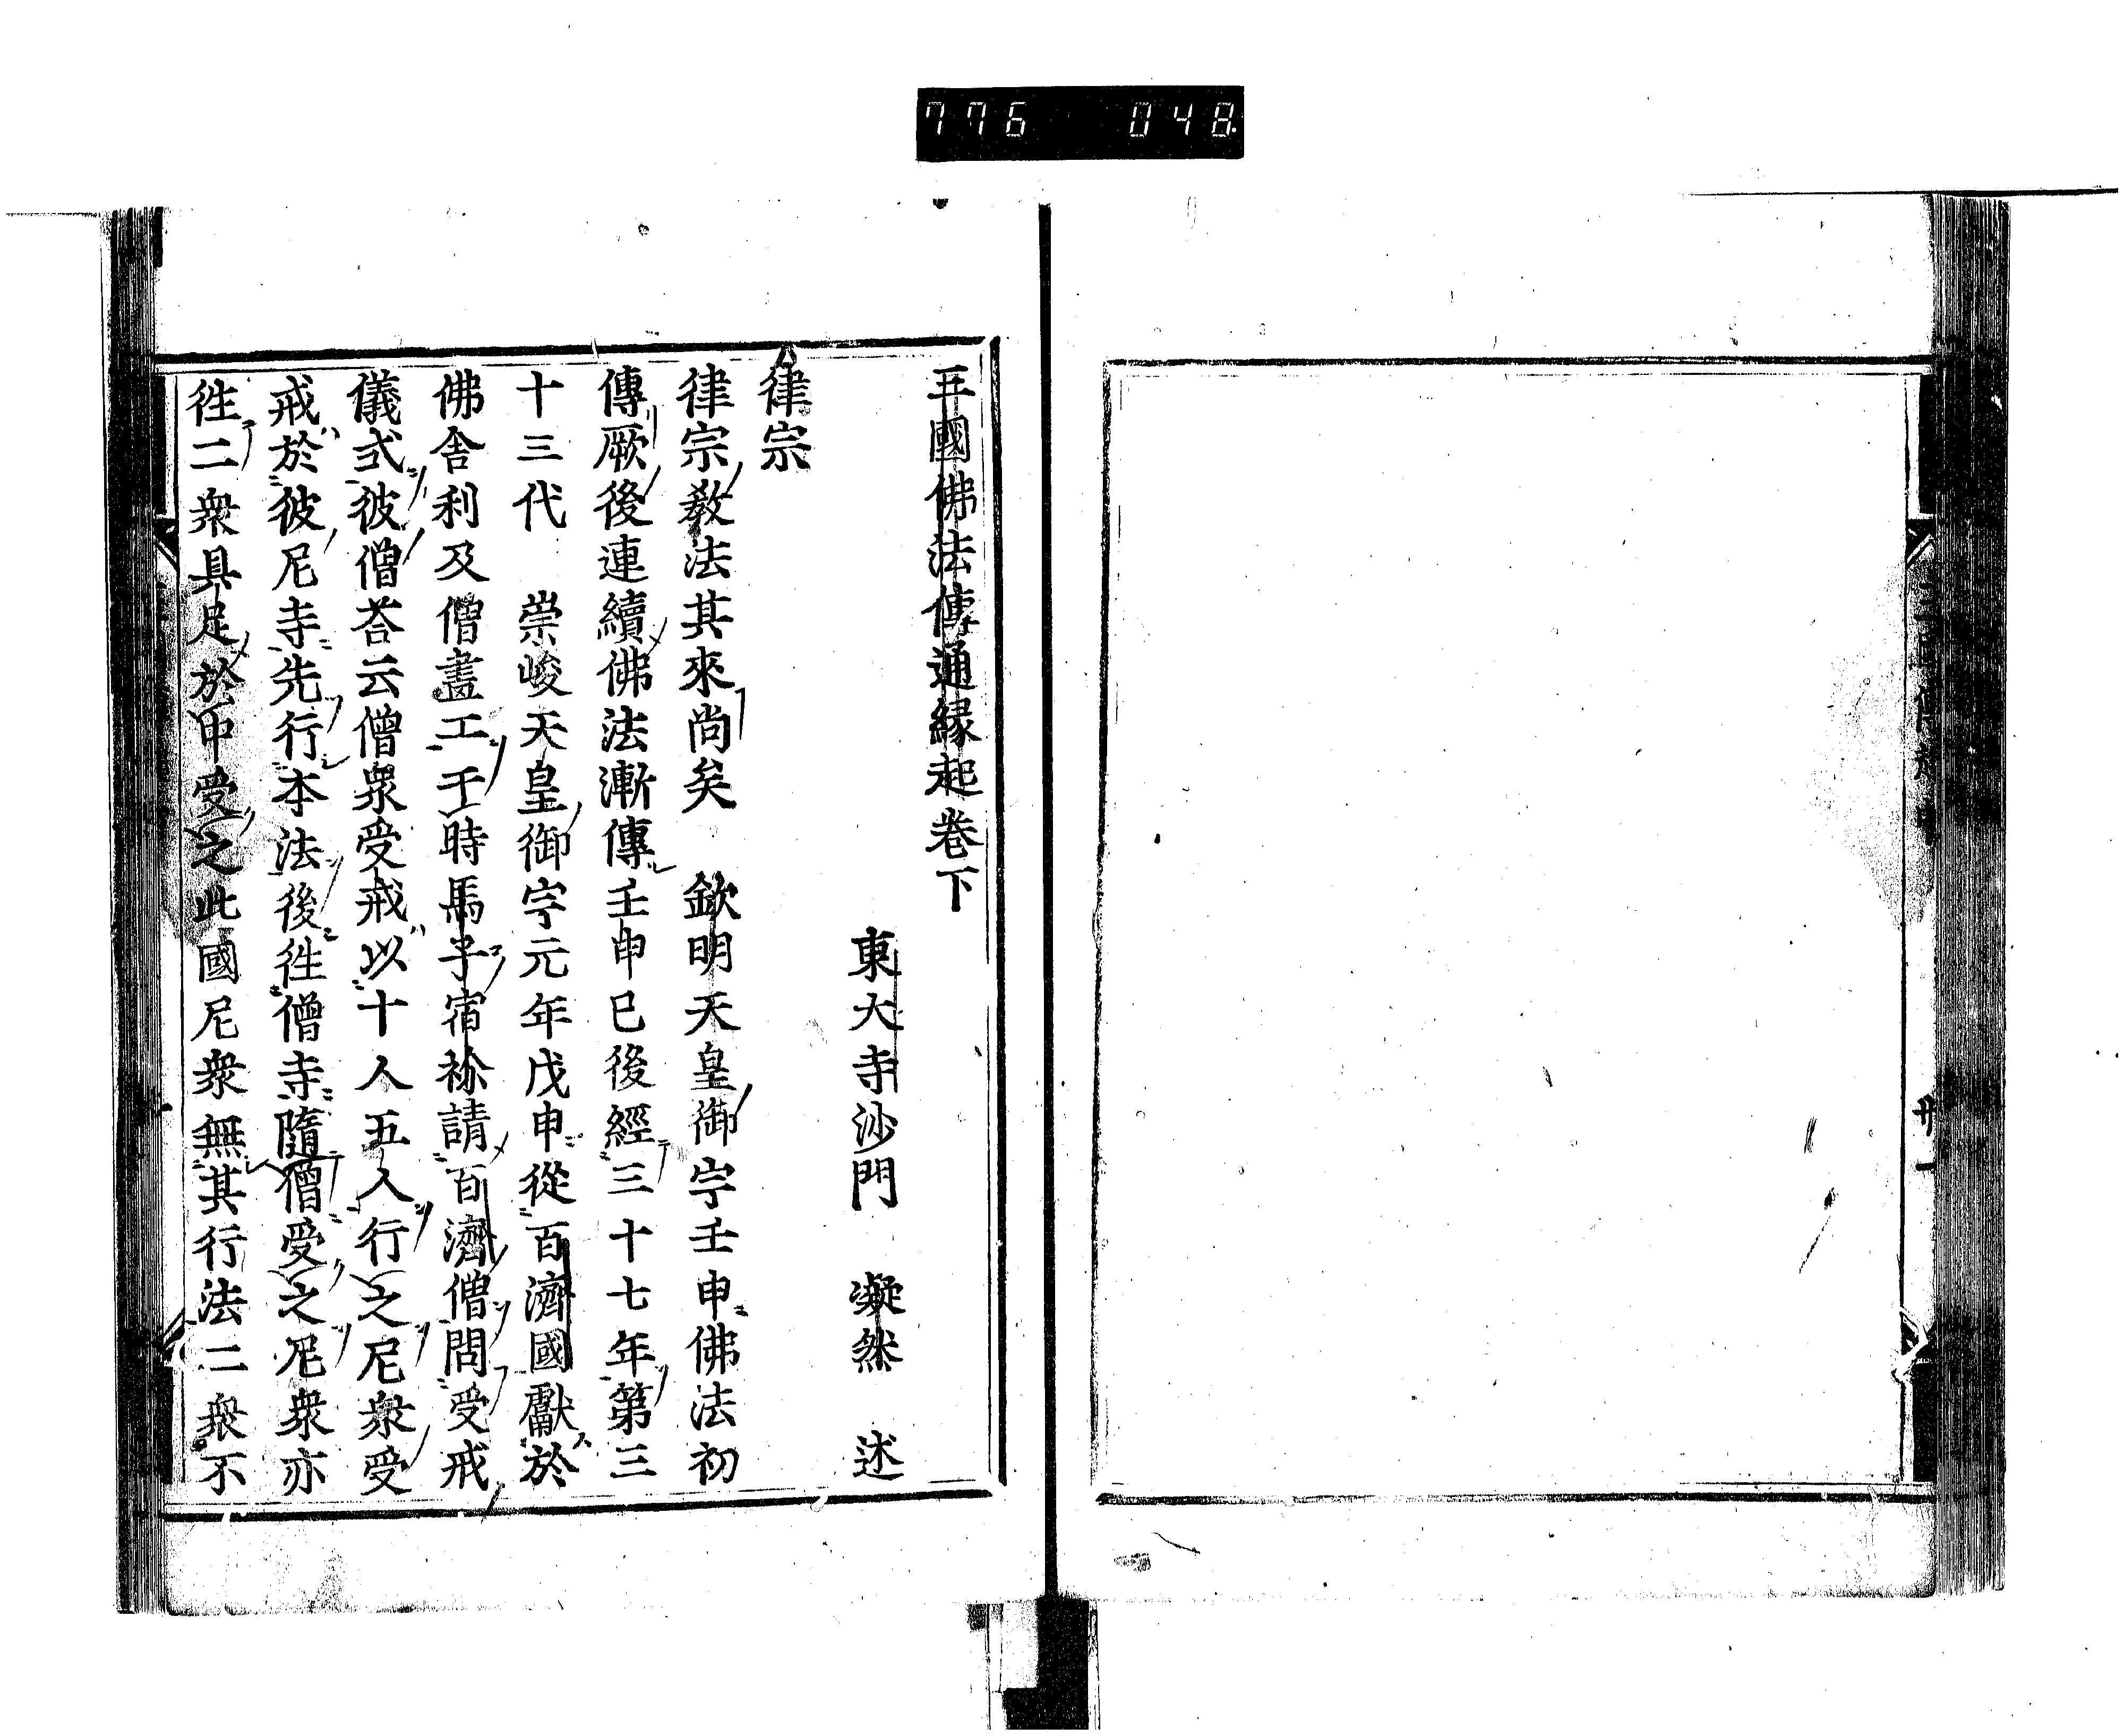 776 048
三國佛法傳通縁起巻下
東大寺沙門 凝然 述
律宗
律宗教法其來尚矣 欽明天皇御宇壬申佛法初
傳厥後連續佛法漸傳壬申已後經三十七年第三
十三代 崇峻天皇御宇元年戊申從百濟國獻於
佛舎利及僧畫工于時馬子宿祢請百濟僧問受戒
儀式彼僧荅云僧衆受戒以十人五人行之尼衆受
戒於彼尼寺先行本法後徃僧寺隨僧受之尼衆亦
徃二衆具足於中受之此國尼衆無其行法二衆不